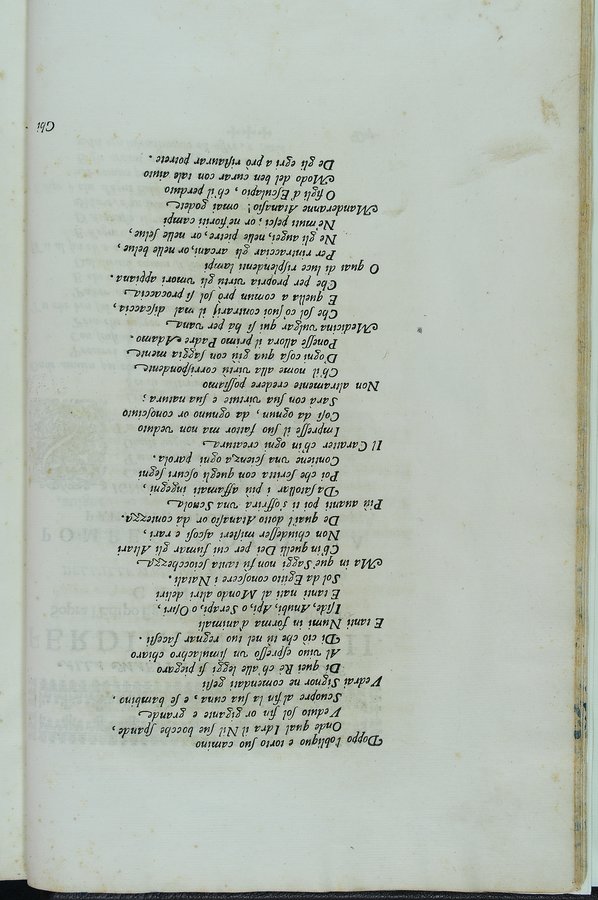 Doppo l'obliquo e torto suo camino
Onde qual Idra il Nil sue bocche spande,
Veduto sol sin or gigante e grande
Scuopre alfin la sua cuna, e se bambino.
Vedrai Signor ne comendati gesti
Di quei Rè ch'alle leggi si piegaro
Al vivo espresso un simulachro chiaro
Di ciò che tù nel tuo regnar facesti.
E tanti Numi in forma d'animali
Iside, Anubi, Api, o Serapi, o Osiri,
E tanti nati al Mondo altri deliri
Sol da Egitto conoscere i Natali.
Ma in que Saggi non fù tanta sciochezza
Ch'in quelli Dei per cui fumar gli Altari
Non chiudesser misteri ascosi e rari,
De quai'l dotto Atanasio or dà contezza.
Più avanti poi ti s'offrirà una Scuola
Da satollar i più affamati ingegni,
Poi che scritta con quegli oscuri segni
Contiene una scienza ogni parola.
Il Caratter ch'in ogni creatura
Impresse il suo fattor ma non veduto
Così da ognun, da ognuno or conosciuto
Sarà con sua virtute e sua natura;
Non altramente credere possiamo
Ch'il nome alla virtù corrispondente
D'ogni cosa qua giù con saggia mente
Ponesse allora il primo Padre Adamo.
Medicina vulgar qui si hà per vana
Che sol co suoi contrarij il mal discaccia,
E quella a comun prò sol si procaccia
Che per propria virtù gli umori appiana.
O quai di luce risplendenti lampi
Per rintracciar gli arcani, or nelle belue,
Ne gli augei, nelle pietre, or nelle selue,
Ne muti pesci; or ne fioriti campi
Manderanne Atanasio! omai godete
O figli d'Esculapio, ch'il perduto
Modo del ben curar con tale aiuto
De gli egri a prò ristaurar potrete.
Ghi